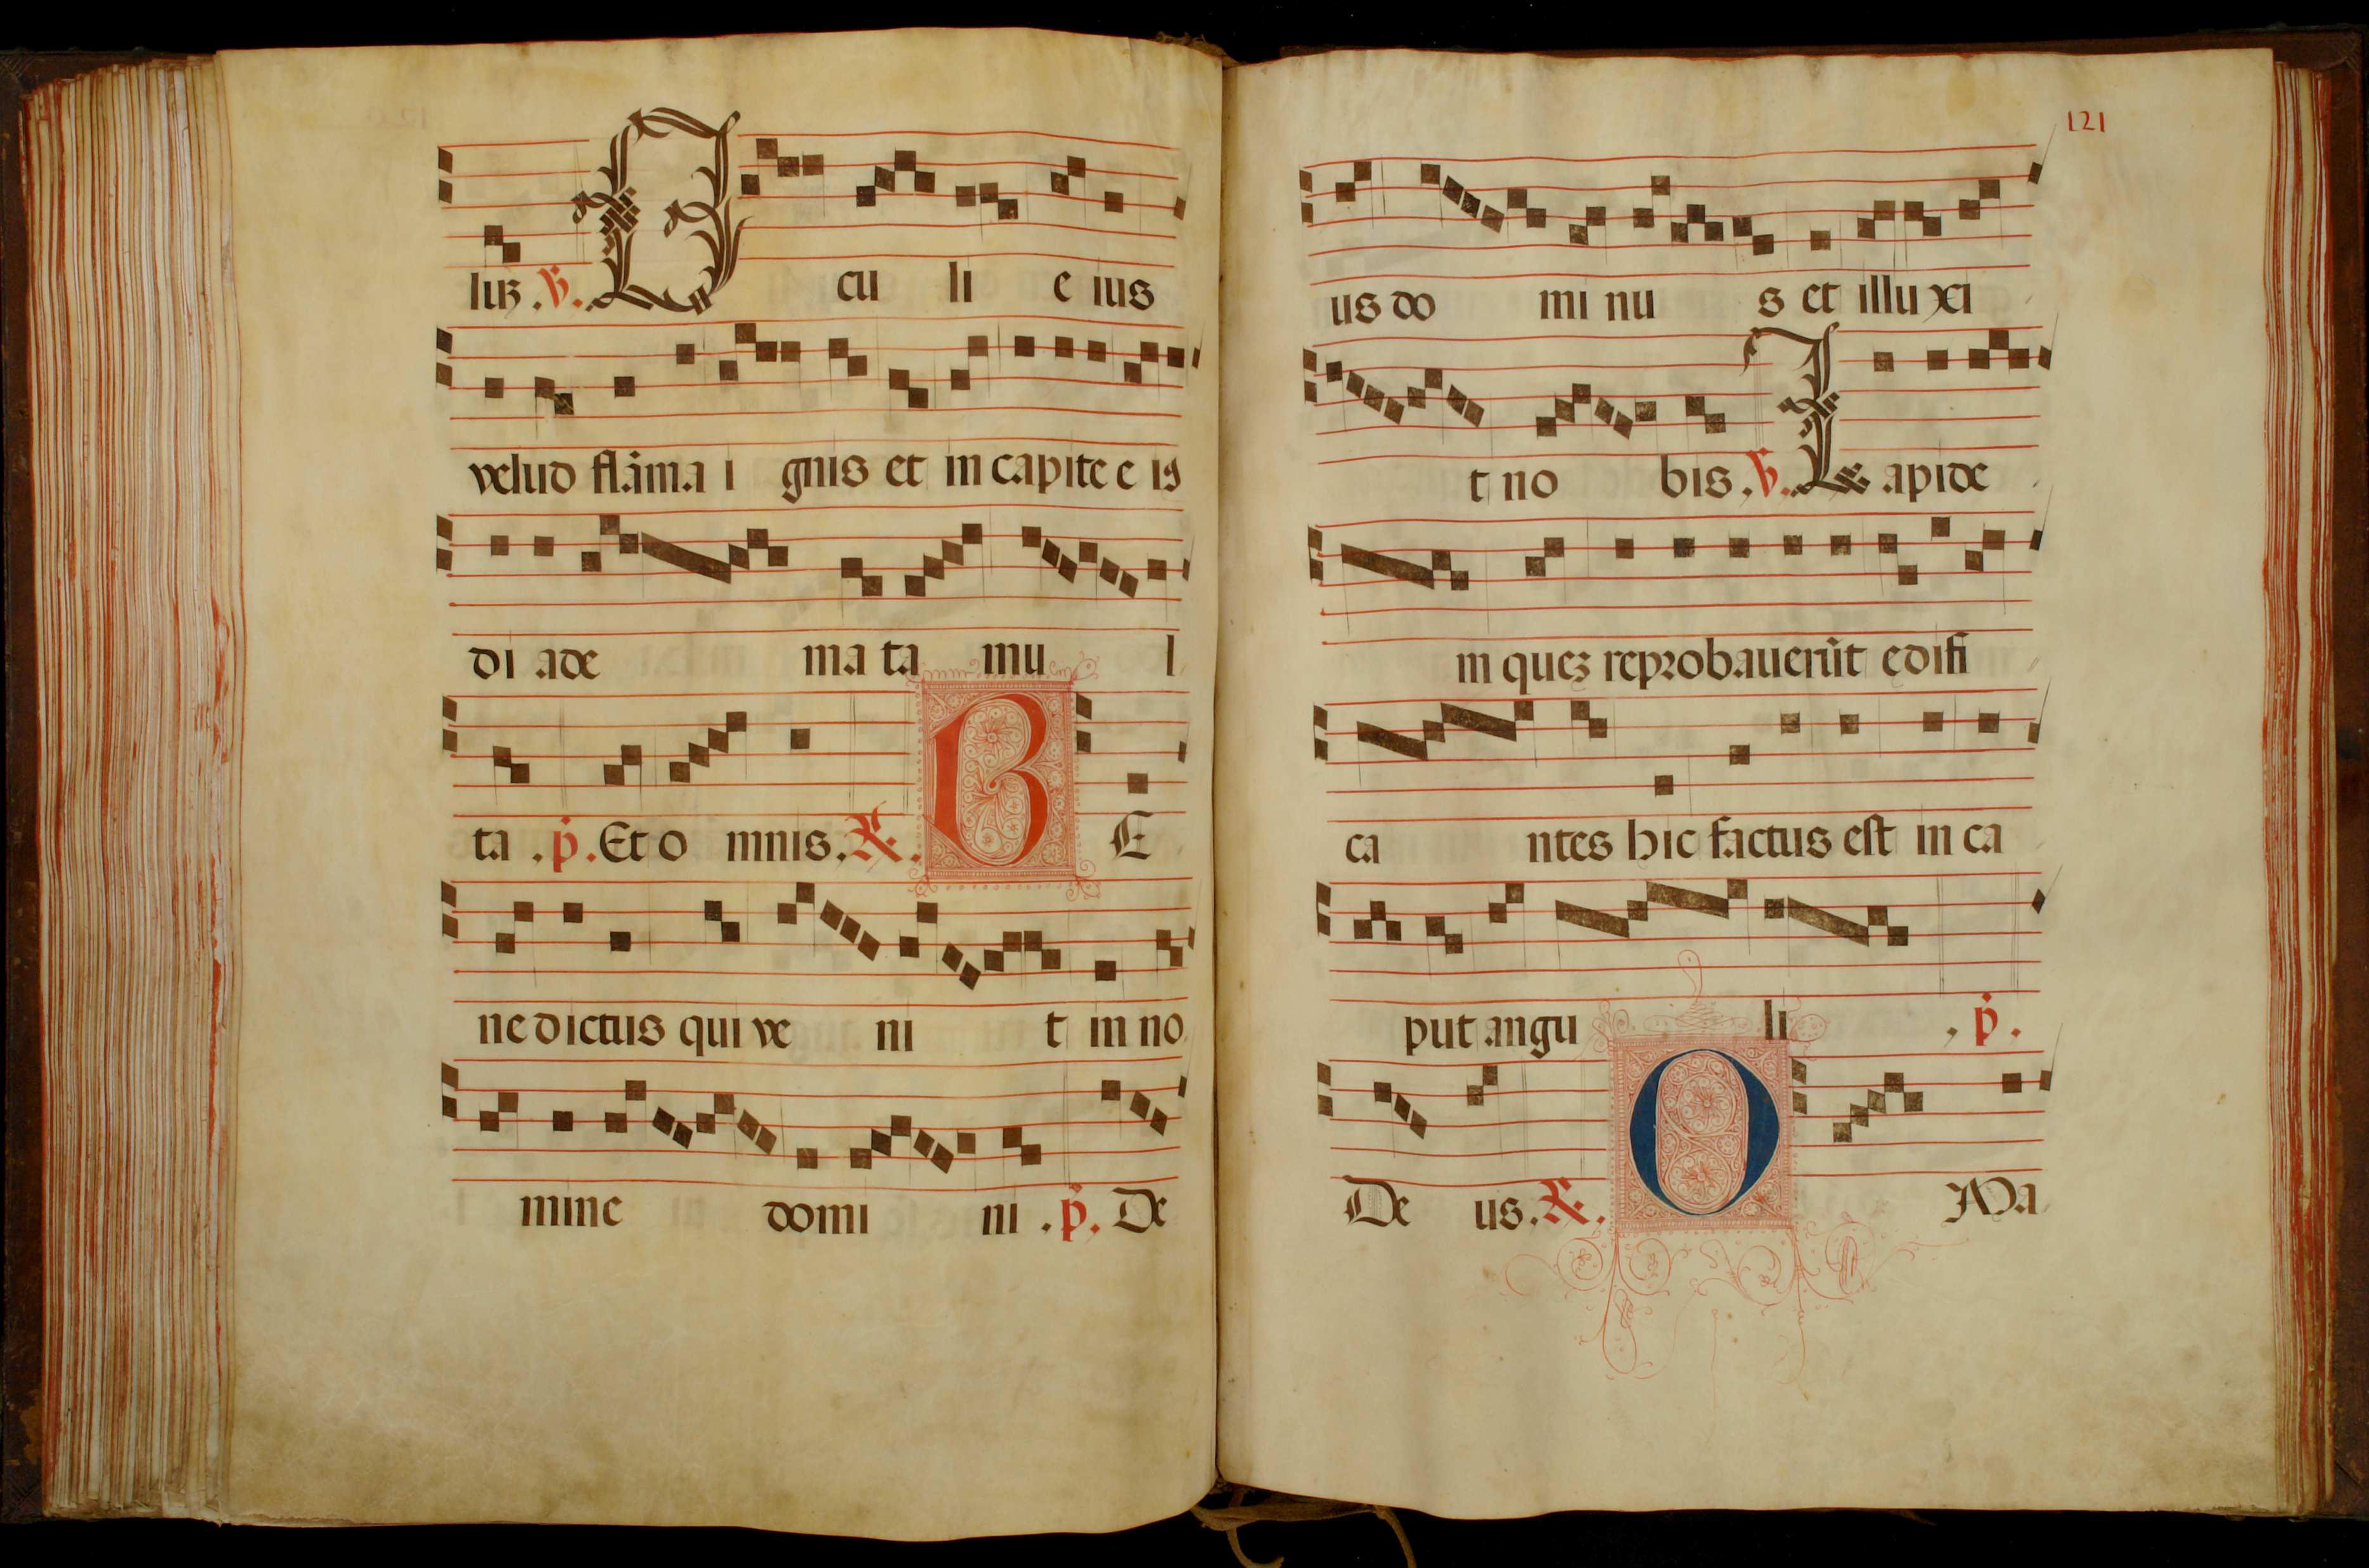 liꝫ . ℣. O cu li e ius
velud flāma i gnis et in capite e iꝰ
di ade ma ta mu l
ta . p̄ . Et o mnis . ℟ . B E
ne dictus qui ve ni t in no
mine domi ni . p̄ . De
121
us do mi nu s et illu xi
t no bis . ℣. L apide
m queꝫ reprobauerūt edifi
ca ntes hic factus est in ca
put angu li , p̄ .
De us . ℟ . O Ma